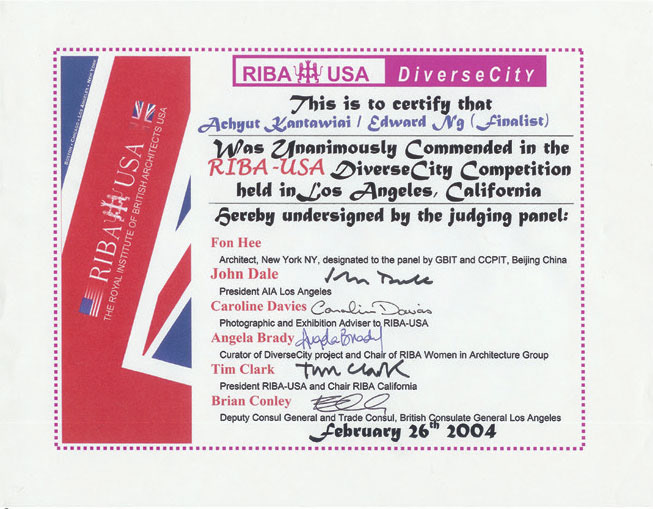 RIBA USA DiverseCity
This is to certify that
Achyut Kantawiai / Edward Ng (Finalist)
Was Unanimously Commended in the
RIBA-USA DiverseCity Competition
held in Los Angeles, California
Hereby undersigned by the judging panel:
Fon Hee
Architect, New York NY, designated to the panel by GBIT and CCPIT, Beijing China
John Dale John Dale
President AIA Los Angeles
Caroline Davies Caroline Davies
Photographic and Exhibition Adviser to RIBA-USA
Angela Brady Angela Brady
Curator of DiverseCity project and Chair of RIBA Women in Architecture Group
Tim Clark Tim Clark
President RIBA-USA and Chair RIBA California
Brian Conley
Deputy Consul General and Trade Consul, British Consulate General Los Angeles
February 26th 2004
RIBA USA
THE ROYAL INSTITUTE OF BRITISH ARCHITECTS USA